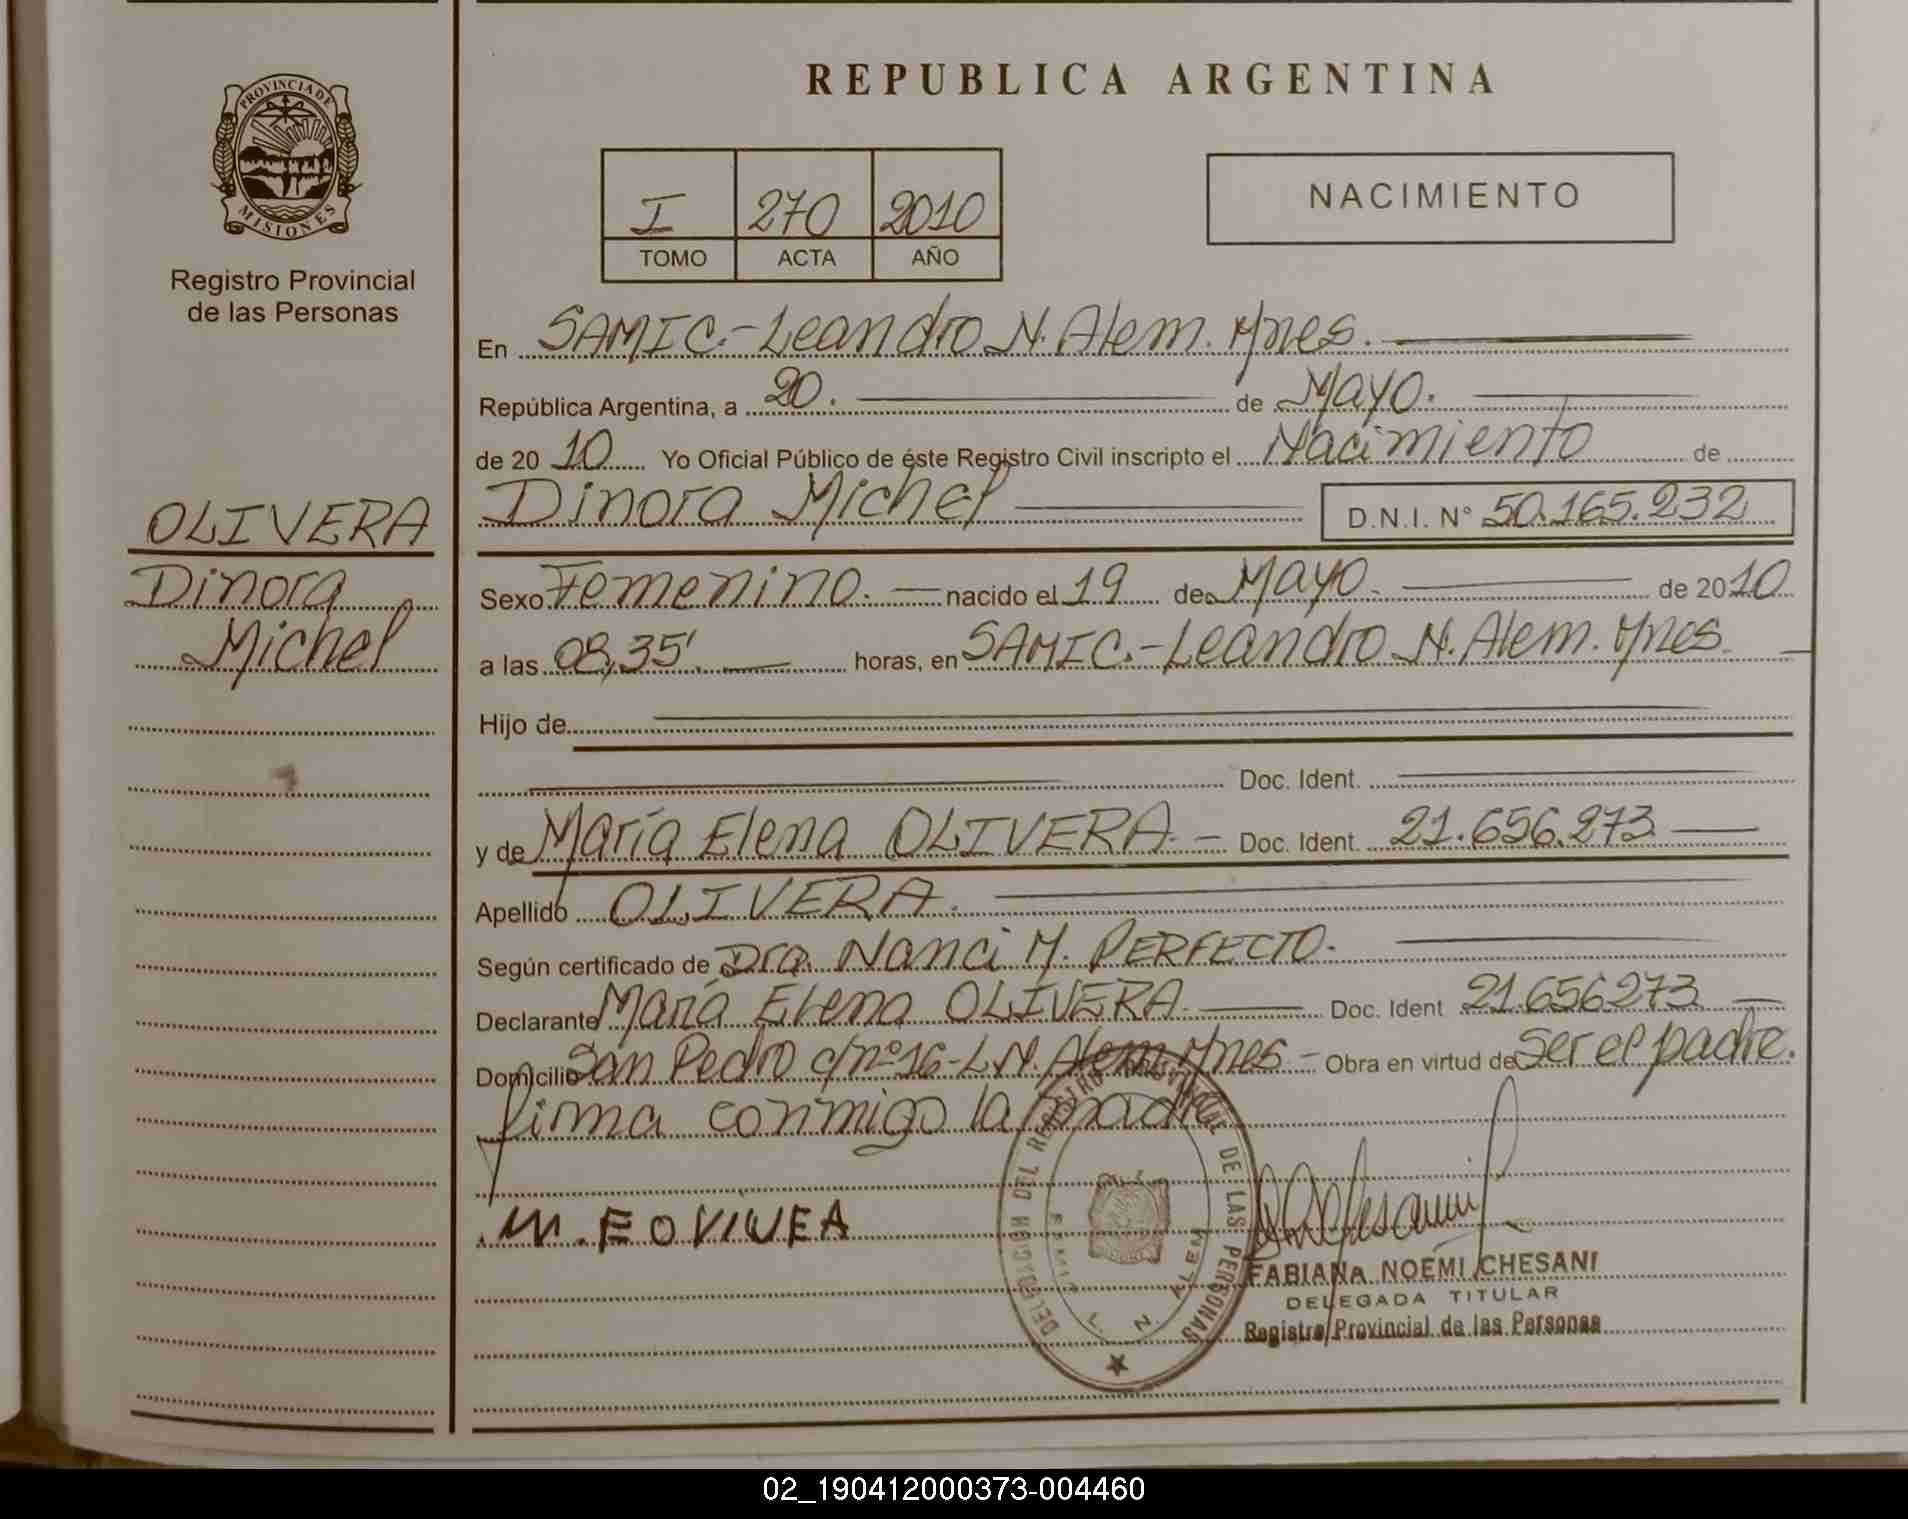 REPUBLICA ARGENTINA
PROVINCIA DE
MISIONES
Registro Provincial
de las Personas
I 270 2010
TOMO ACTA AÑO
NACIMIENTO
En SAMIC.-Leandro N. Alem. Mnes.
República Argentina, a 20. de Mayo.
de 2010 Yo Oficial Público de éste Registro Civil inscripto el Nacimiento de
Dinora Michel D.N.I. N° 50.165.232
OLIVERA
Dinora
Michel
Sexo Femenino. nacido el 19 de Mayo. de 2010
a las 08,35'. horas, en SAMIC.-Leandro N. Alem. Mnes.
Hijo de
Doc. Ident.
y de María Elena OLIVERA.- Doc. Ident. 21.656.273
Apellido OLIVERA.
Según certificado de Dra. Nanci M. PERFECTO.
Declarante María Elena OLIVERA. Doc. Ident 21.656273
Domicilio San Pedro c/nº16-L.N. Alem Mnes.- Obra en virtud de Ser el padre.
firma conmigo la madre
DEL REGISTRO PROVINCIAL DE LAS PERSONAS
L. N. ALEM
M. E O VIVEA
FABIANA NOEMI CHESANI
DELEGADA TITULAR
Registro Provincial de las Personas
02_190412000373-004460